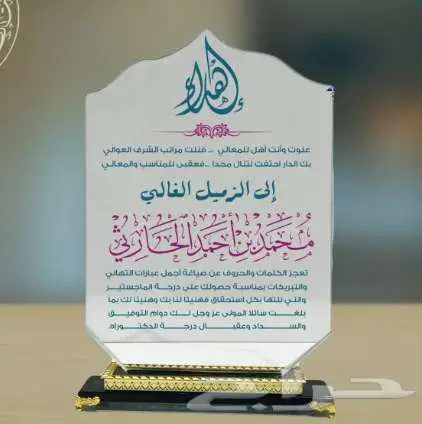 إهداء
علوت وأنت أهل للمعالي ... فنلت مراتب الشرف العوالي
بك الدار احتفت لتنال مجدا ... فعقبى للمناسب والمعالي
إلى الزميل الغالي
محمد بن أحمد الحارثي
تعجز الكلمات والحروف عن صياغة أجمل عبارات التهاني
والتبريكات بمناسبة حصولك على درجة الماجستير
والتي نلتها بكل استحقاق فهنيئا لنا بك وهنيئا لك بما
بلغت سائلا المولى عز وجل لك دوام التوفيق
والسداد وعقبال درجة الدكتوراه
حراج